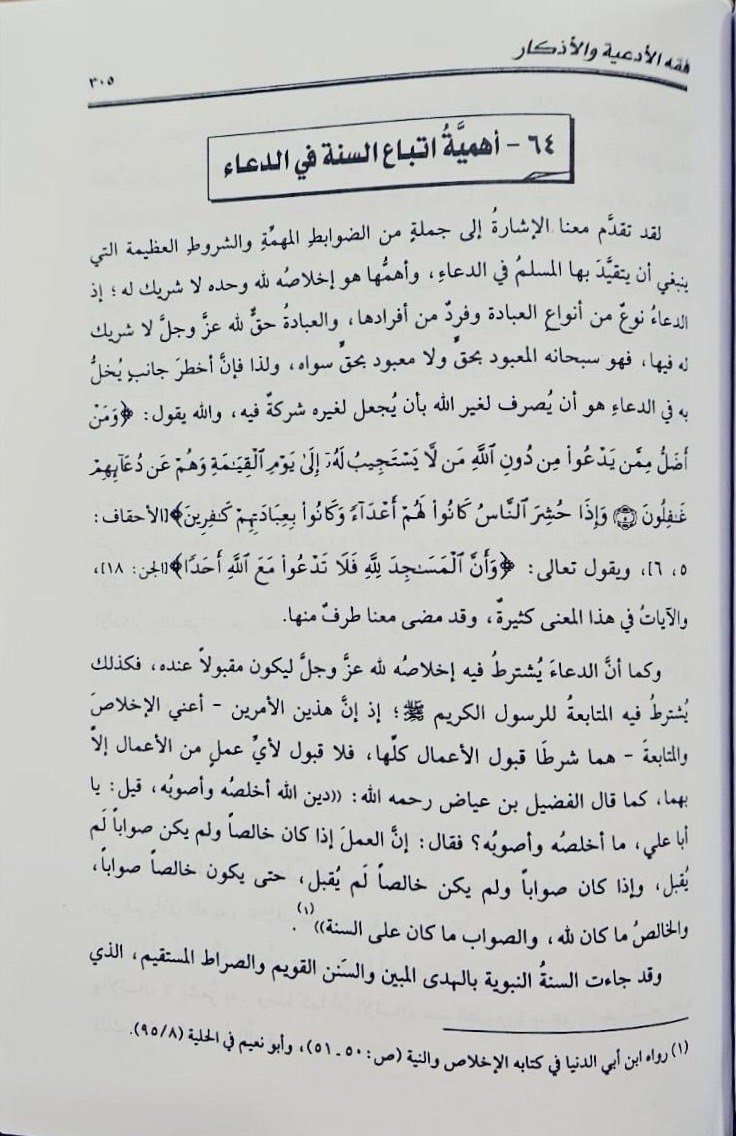 فقه الأدعية والأذكار
٣٠٥
٦٤ - أهميَّةُ اتباع السنة في الدعاء
لقد تقدَّم معنا الإشارةُ إلى جملةٍ من الضوابطِ المهمَّةِ والشروطِ العظيمة التي
ينبغي أن يتقيَّدَ بها المسلمُ في الدعاءِ، وأهمُّها هو إخلاصُه لله وحده لا شريك له؛ إذ
الدعاءُ نوعٌ من أنواع العبادة وفردٌ من أفرادها، والعبادةُ حقٌّ لله عزَّ وجلَّ لا شريك
له فيها، فهو سبحانه المعبود بحقٍّ ولا معبود بحقٍّ سواه، ولذا فإنَّ أخطرَ جانبٍ يُخلُّ
به في الدعاءِ هو أن يُصرف لغير الله بأن يُجعل لغيره شركةٌ فيه، والله يقول: ﴿وَمَنْ
أَضَلُّ مِمَّن يَدْعُواْ مِن دُونِ ٱللَّهِ مَن لَّا يَسْتَجِيبُ لَهُۥٓ إِلَىٰ يَوْمِ ٱلْقِيَٰمَةِ وَهُمْ عَن دُعَآئِهِمْ
غَٰفِلُونَ ۝٥ وَإِذَا حُشِرَ ٱلنَّاسُ كَانُواْ لَهُمْ أَعْدَآءً وَكَانُواْ بِعِبَادَتِهِمْ كَٰفِرِينَ﴾[الأحقاف:
٥، ٦]، ويقول تعالى: ﴿وَأَنَّ ٱلْمَسَٰجِدَ لِلَّهِ فَلَا تَدْعُواْ مَعَ ٱللَّهِ أَحَدًا﴾[الجن: ١٨]،
والآياتُ في هذا المعنى كثيرةٌ، وقد مضى معنا طرفٌ منها.
وكما أنَّ الدعاءَ يُشترطُ فيه إخلاصُه لله عزَّ وجلَّ ليكون مقبولاً عنده، فكذلك
يُشترطُ فيه المتابعةُ للرسول الكريم ﷺ؛ إذ إنَّ هذين الأمرين - أعني الإخلاصَ
والمتابعةَ - هما شرطَا قبول الأعمال كلِّها، فلا قبول لأيِّ عملٍ من الأعمال إلاَّ
بهما، كما قال الفضيل بن عياض رحمه الله: ((دين الله أخلصُه وأصوبُه، قيل: يا
أبا علي، ما أخلصُه وأصوبُه؟ فقال: إنَّ العملَ إذا كان خالصاً ولم يكن صواباً لَم
يُقبل، وإذا كان صواباً ولم يكن خالصاً لَم يُقبل، حتى يكون خالصاً صواباً،
والخالصُ ما كان لله، والصواب ما كان على السنة))(١).
وقد جاءت السنةُ النبوية بالهدى المبين والسَنن القويم والصراط المستقيم، الذي
(١) رواه ابن أبي الدنيا في كتابه الإخلاص والنية (ص: ٥٠ـ٥١)، وأبو نعيم في الحلية (٩٥/٨).